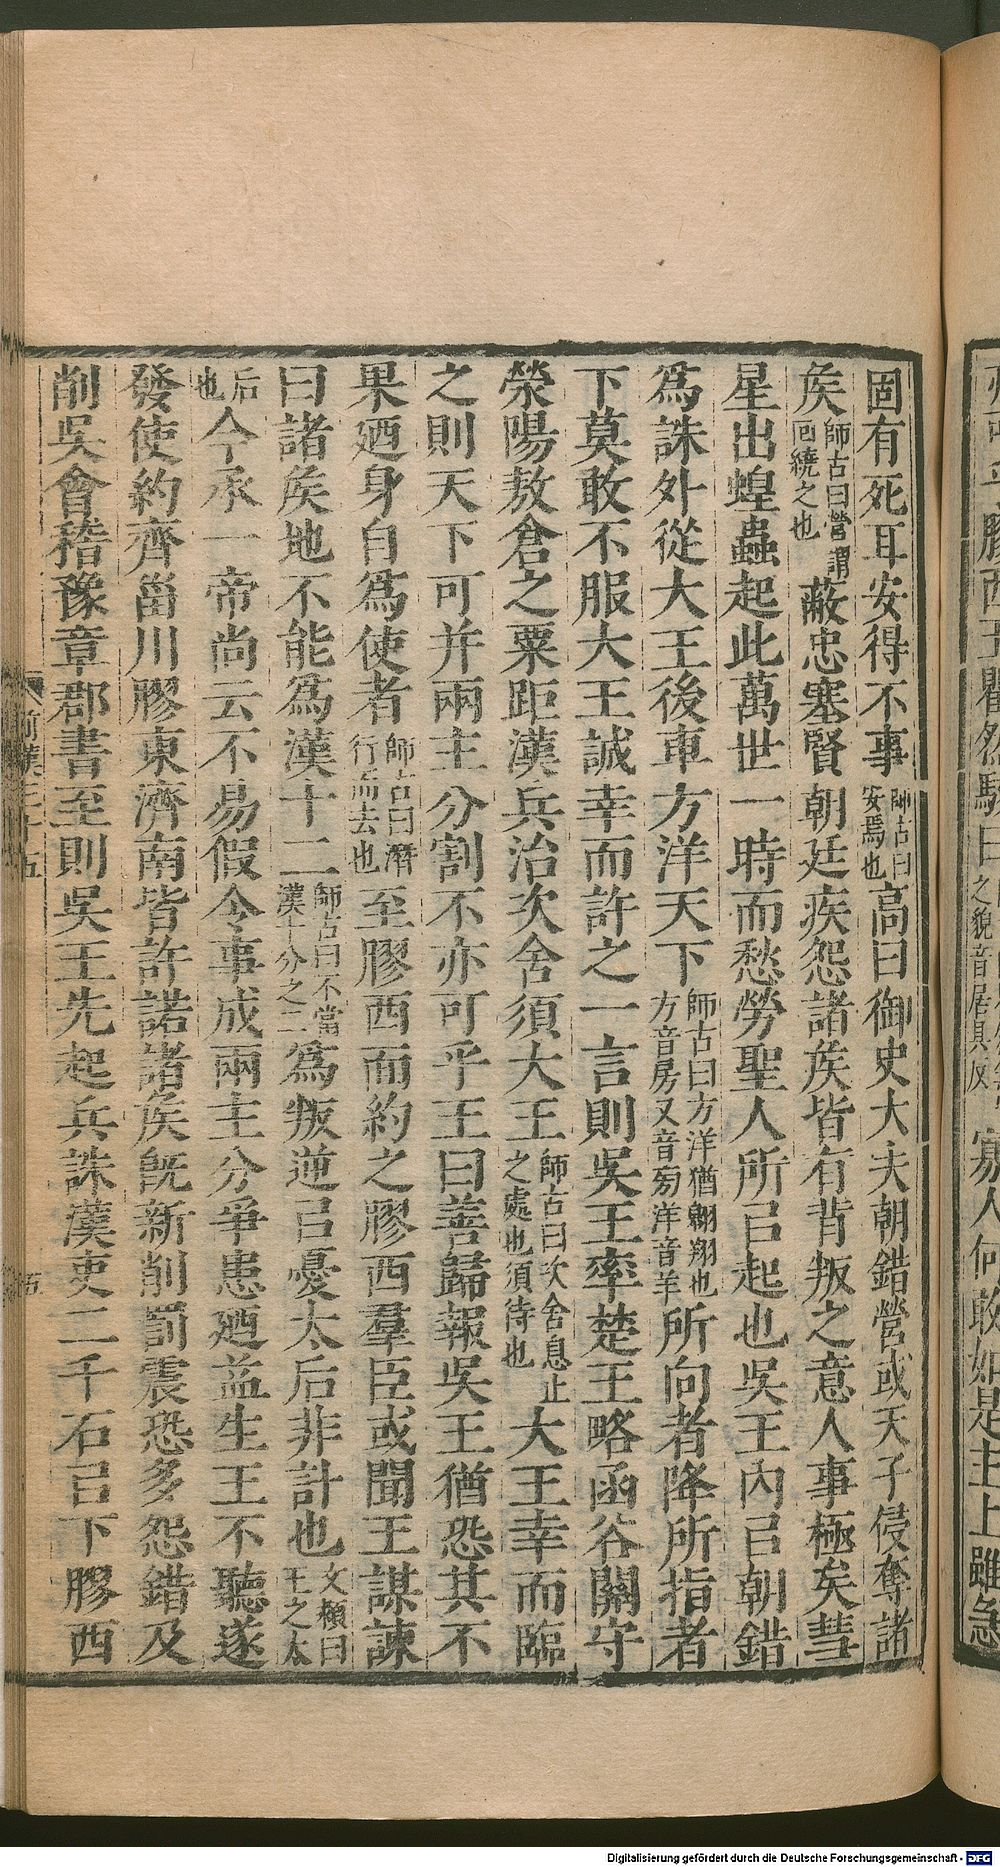 固有死耳安得不事師古曰安焉也高曰御史大夫朝錯營或天子侵奪諸
矦師古曰營謂回繞之也蔽忠塞賢朝廷疾怨諸矦皆有背叛之意人事極矣彗
星出蝗蟲起此萬世一時而愁勞聖人所㠯起也吳王內㠯朝錯
爲誅外從大王後車方洋天下師古曰方洋猶翺翔也方音房又音旁洋音羊所向者降所指者
下莫敢不服大王誠幸而許之一言則吳王率楚王略函谷關守
滎陽敖倉之粟距漢兵治次舍須大王師古曰次舍息止之處也須待也大王幸而臨
之則天下可并兩主分割不亦可乎王曰善歸報吳王猶恐其不
果廼身自爲使者師古曰潛行而去也至膠西面約之膠西羣臣或聞王謀諫
曰諸矦地不能爲漢十二師古曰不當漢十分之二爲叛逆㠯憂太后非計也文頴曰王之太
后也今承一帝尚云不易假令事成兩主分爭患廼益生王不聽遂
發使約齊菑川膠東濟南皆許諾諸矦旣新削罰震恐多怨錯及
削吳會稽豫章郡書至則吳王先起兵誅漢吏二千石㠯下膠西
前漢三十五
五
膠西王瞿然駭曰之貌音居具反寡人何敢如是主上雖急
Digitalisierung gefördert durch die Deutsche Forschungsgemeinschaft - DFG